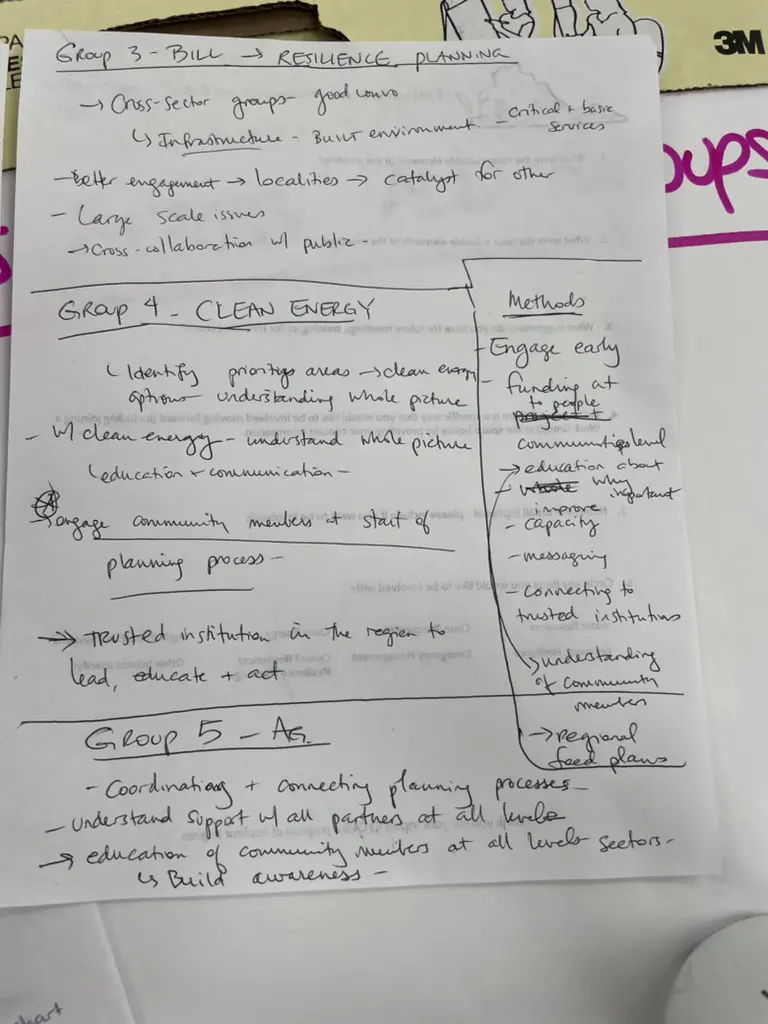 3M
oups
GROUP 3 - BILL → RESILIENCE PLANNING
→ Cross-sector groups - good convo
↳ Infrastructure - Built environment - critical + basic
services
- better engagement → localities → catalyst for other
- Large scale issues
→ Cross-collaboration w/ public -
GROUP 4 - CLEAN ENERGY
↳ Identify priority areas → clean energy
options - understanding whole picture
- w/ clean energy - understand whole picture
↳ education + communication -
→ engage community members at start of
planning process -
→ TRUSTED institution in the region to
lead, educate + act
Methods
- Engage early
- funding at
to people
communities level
→ education about
- why
important
improve
- capacity
- messaging
- connecting to
trusted institutions
→ understanding
of community
members
→ regional
feed plans
GROUP 5 - AG.
- Coordinating + connecting planning processes -
- understand support w/ all partners at all levels
→ education of community members at all levels sectors -
↳ Build awareness -
chart